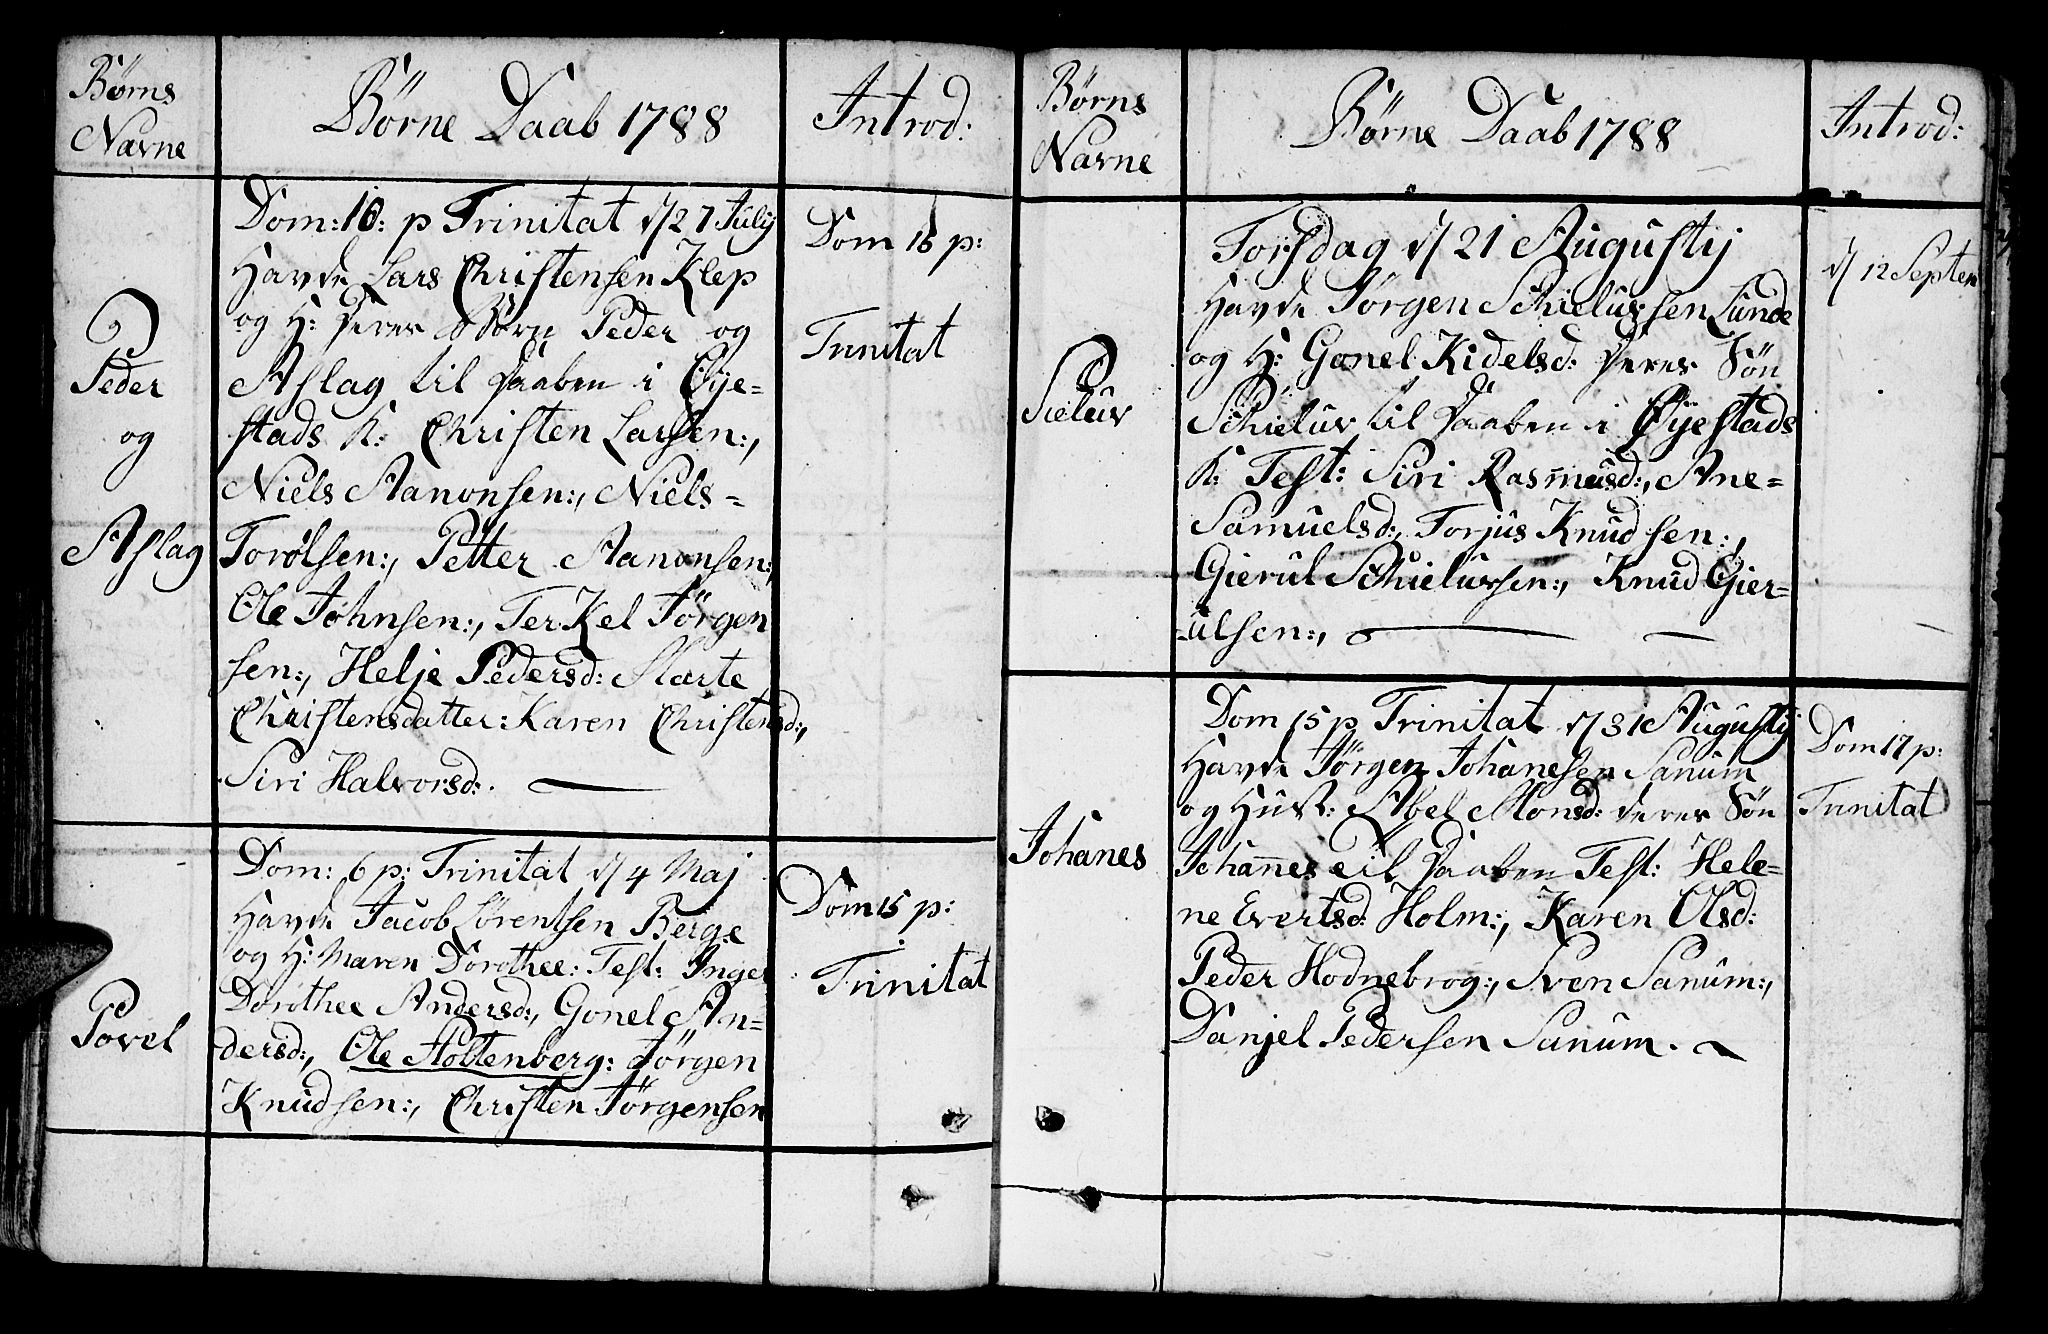 Børns
Navne
Børne Daab 1788
Introd:
Peder
og
Aslag
Dom: 10: p Trinitat d/27 July
Havde Lars Christensen Klep
og H: deres Børn Peder og
Aslag til Daaben i Øye=
stads K: Christen Larsen:,
Niels Aanonsen:, Niels=
Torølsen:, Petter Aanonsen:,
Ole Johnsen:, TerKel Jørgen
sen:, Helje Pedersd: Marte
Christensdatter: Karen Christensd:,
Siri Halvorsd:.
Dom 16 p:
Trinitat
Povel
Dom: 6 p: Trinitat d/4 Maj
Havde Jacob Sørentsen Berge
og H: Maren Dorothee: Test: Inger
Dorothee Andersd:, Gonel An=
dersd:, Ole Holtenberg: Jørgen
Knudsen:, Christen Jørgensen
Dom 15 p:
Trinitat
Børns
Navne
Børne Daab 1788
Introd:
Sielur
Torsdag d/21 Augustij
Havde Jørgen Schielufsen Lunde
og H: Gonel Kidelsd: deres Søn
Schieluv til Daaben i Øyestads
K: Test: Siri Rasmusd:, Ane=
Samuelsd:, Torjus Knudsen:,
Gierul Schielufsen:, Knud Gier=
=ulsen:,
d/12 Septem
Johanes
Dom 15 p Trinitat d/31 Augustij
Havde Jørgen Johanesen Sanum
og Hust: Abel Monsd: deres Søn
Johannes til Daaben Test: Hele=
ne Evertsd: Holm:, Karen Olsd:
Peder Hodnebrog:, Sven Sanum:,
Danjel Pedersen Sanum.
Dom 17 p:
Trinitat